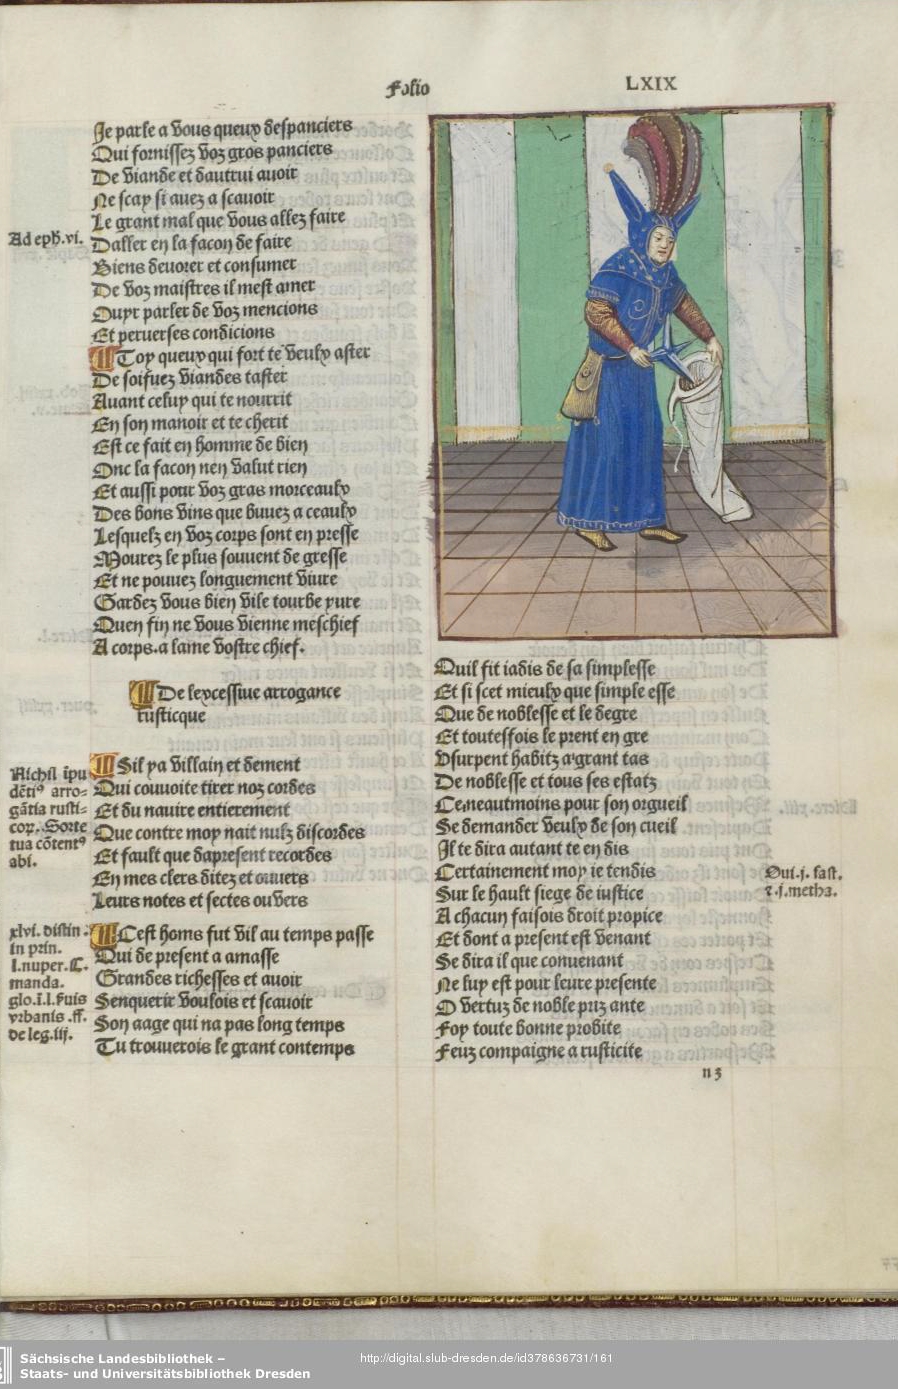 Folio
LXIX
Je parle a vous queux despanciers
Qui fornissez voz gros panciers
De viande et dautrui avoir
Ne scay si avez a scavoir
Le grant mal que vous allez faire
Ad eph.vi.
Daller en la facon de faire
Biens devorer et consumer
De voz maistres il mest amer
Ouyr parler de voz mencions
Et perverses condicions
Toy queux qui fort te veulx aster
De soifuez viandes taster
Avant celuy qui te nourrit
En son manoir et te cherit
Est ce fait en homme de bien
Onc la facon nen valut rien
Et aussi pour voz gras morceaulx
Des bons vins que buuez a ceaulx
Lesquelz en voz corps sont en presse
Mourez le plus souvent de gresse
Et ne pouuez longuement vivre
Gardez vous bien vile tourbe yure
Quen fin ne vous vienne meschief
A corps.a lame vostre chief.
De lexcessiue arrogance
rusticque
Nichil īpu
dētiꝰ arro-
gātia rusti-
cor. Sorte
tua cōtentꝰ
abi.
Sil ya villain et dement
Qui couuoite tirer noz cordes
Et du nauire entierement
Que contre moy nait nulz discordes
Et fault que dapresent recordes
En mes clers ditez et ouuers
Leurs notes et sectes ouvers
xlvi. distin
in prin.
l.nuper.C.
manda.
glo.ī.l.fuis
vrbanis .ff.
de leg.iij.
Cest homs fut vil au temps passe
Qui de present a amasse
Grandes richesses et avoir
Senquerir voulois et scavoir
Son aage qui na pas long temps
Tu trouuerois le grant contemps
Quil fit iadis de sa simplesse
Et si scet mieulx que simple esse
Que de noblesse et le degre
Et toutesfois le prent en gre
Vsurpent habitz a grant tas
De noblesse et tous ses estatz
Ce neautmoins pour son orgueil
Se demander veulx de son cueil
Il te dira autant te en dis
Certainement moy ie tendis
Sur le hault siege de iustice
A chacun faisois droit propice
Et dont a present est venant
Se dira il que conuenant
Ne luy est pour leure presente
O vertuz de noble priz ante
Foy toute bonne probite
Feuz compaigne a rusticite
Oui.j. fast.
⁊.j.metha.
n 3
Sächsische Landesbibliothek –
Staats- und Universitätsbibliothek Dresden
http://digital.slub-dresden.de/id378636731/161